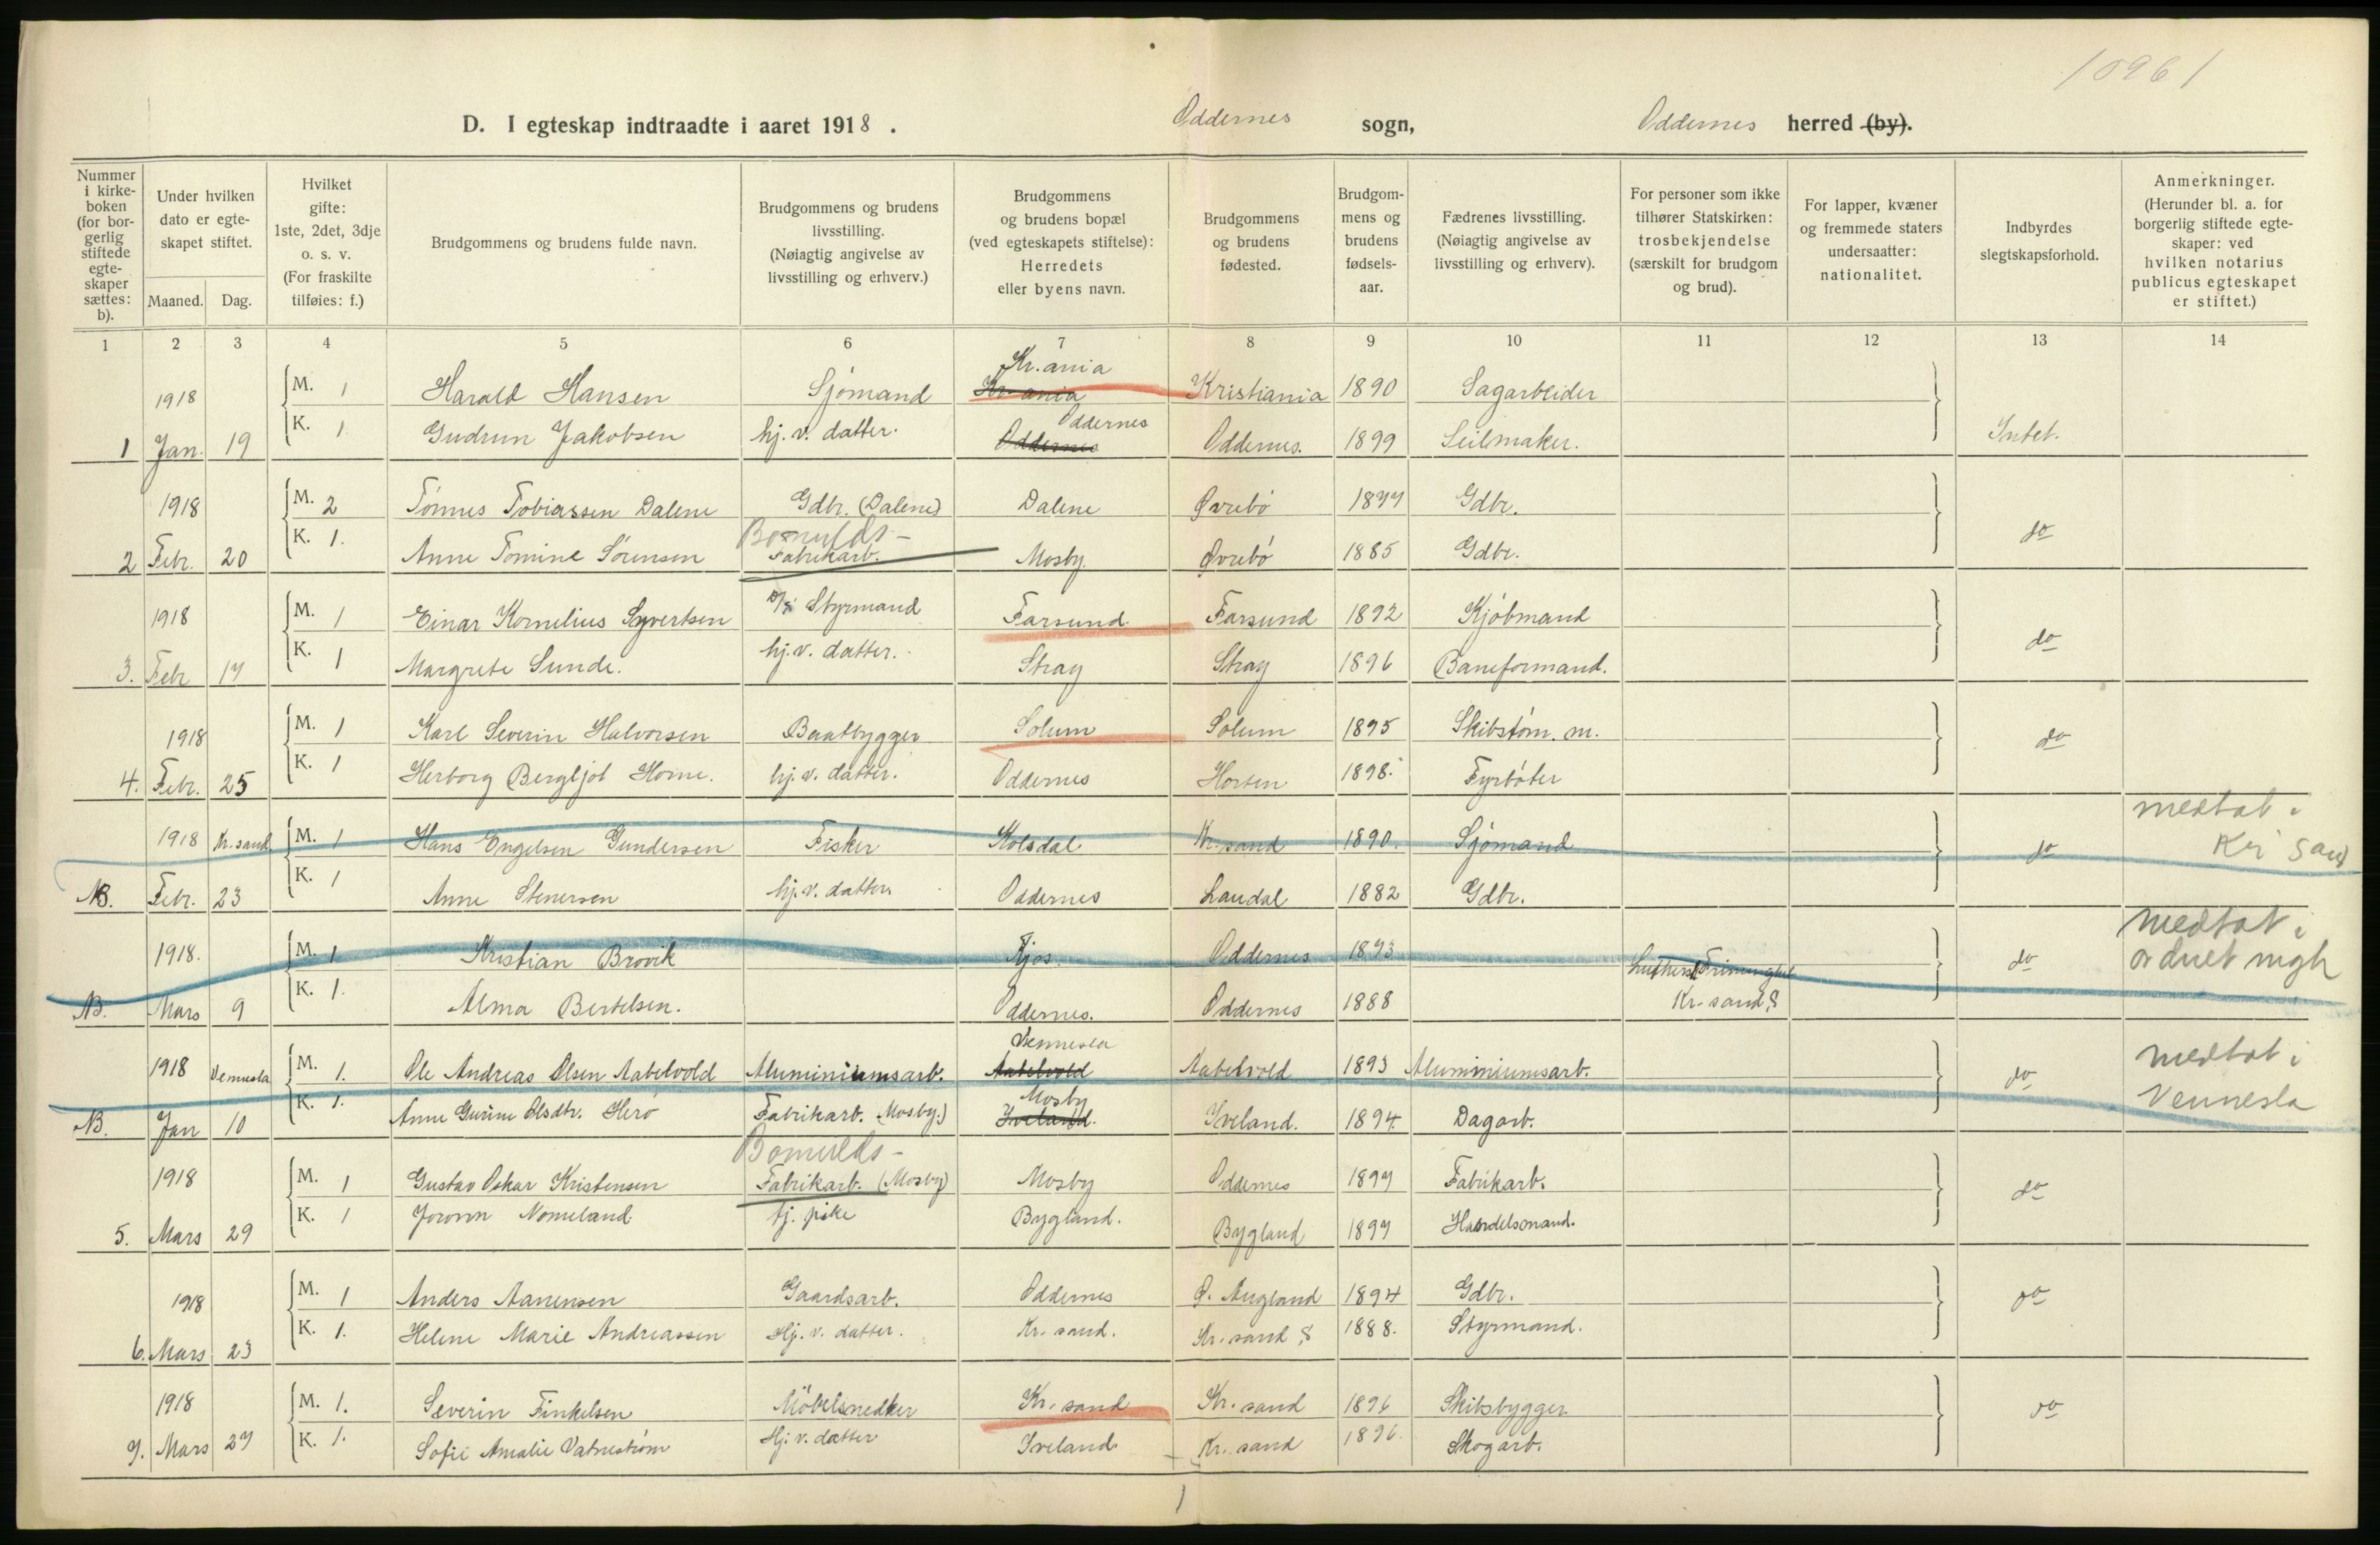 10961
D. I egteskap indtraadte i aaret 1918. Oddernes sogn, Oddernes herred (by).
Nummer i kirkeboken (for borgerlig stiftede egteskaper sættes: b).
Under hvilken dato er egteskapet stiftet.
Maaned. Dag.
Hvilket gifte: 1ste, 2det, 3dje o. s. v. (For fraskilte tilføies: f.)
Brudgommens og brudens fulde navn.
Brudgommens og brudens livsstilling. (Nøiagtig angivelse av livsstilling og erhverv.)
Brudgommens og brudens bopæl (ved egteskapets stiftelse): Herredets eller byens navn.
Brudgommens og brudens fødested.
Brudgommens og brudens fødselsaar.
Fædrenes livsstilling. (Nøiagtig angivelse av livsstilling og erhverv).
For personer som ikke tilhører Statskirken: trosbekjendelse (særskilt for brudgom og brud).
For lapper, kvæner og fremmede staters undersaatter: nationalitet.
Indbyrdes slegtskapsforhold.
Anmerkninger. (Herunder bl. a. for borgerlig stiftede egteskaper: ved hvilken notarius publicus egteskapet er stiftet.)
1 2 3 4 5 6 7 8 9 10 11 12 13 14
Kr.ania
1918 M. 1 Harald Hansen Sjømand Kr.ania Kristiania 1890 Sagarbeider
Oddernes
1 Jan. 19 K. 1 Gudrun Jakobsen hj. v. datter. Oddernes Oddernes. 1899 Seilmaker. Intet.
1918 M. 2 Tönnes Tobiassen Dalene Gdbr. (Dalene) Dalene Øvrebö 1877 Gdbr.
Bomulds-
2 Febr. 20 K. 1. Anne Tomine Sörensen Fabrikarb. Mosby Øvrebö 1885 Gdbr. do
1918 M. 1 Einar Kornelius Syvertsen Styrmand Farsund Farsund 1892 Kjöbmand
3. Febr 17 K. 1 Margrete Sunde. hj. v. datter. Stray Stray 1896 Baneformand. do
1918 M. 1 Karl Severin Halvorsen Baatbygger Solum Solum 1895 Skibstöm. m.
4. Febr. 25 K. 1 Herborg Bergljot Horne. hj. v. datter. Oddernes Horten 1898. Fyrböter do
1918 Kr.sand M. 1 Hans Engelsen Gundersen Fisker Kolsdal Kr. sand 1890. Sjömand do medtat i Kr sand
NB. Febr. 23 K. 1 Anne Stenersen hj. v. datter. Oddernes Laudal 1882 Gdbr.
1918. M. 1 Kristian Brovik Fjos. Oddernes 1893 Luthersk Frimenighet do medtat i
NB. Mars 9 K. 1. Alma Bertelsen. Oddernes. Oddernes 1888 Kr. sand S
Vennesla
1918 Vennesla M. 1. Ole Andreas Olsen Aabelvold Aluminiumsarb. Aabelvold Aabelvold 1893 Aluminiumsarb. do medtat i Vennesla
Mosby
NB. Jan 10 K. 1. Anne Gurine Olsdtr. Herö Fabrikarb. Mosby.) Iveland. Iveland. 1894. Dagarb.
Bomulds-
1918 M. 1 Gustav Oskar Kristensen Fabrikarb. (Mosby) Mosby Oddernes 1897 Fabrikarb.
5. Mars 29 K. 1 Jorovn Nomeland tj. pike Bygland. Bygland 1897 Handelsmand. do
1918 M. 1 Anders Aanensen Gaardsarb. Oddernes Ø. Augland 1894 Gdbr.
6. Mars 23 K. 1. Helene Marie Andreassen Hj. v. datter. Kr. sand. Kr. sand S 1888. Styrmand. do
1918 M. 1. Severin Finkelsen Möbelsnedker Kr. sand Kr. sand 1896 Skibsbygger
7. Mars 27 K. 1. Sofie Amalie Vatneström Hj. v. datter Iveland Kr. sand 1896. Skogarb. do
1